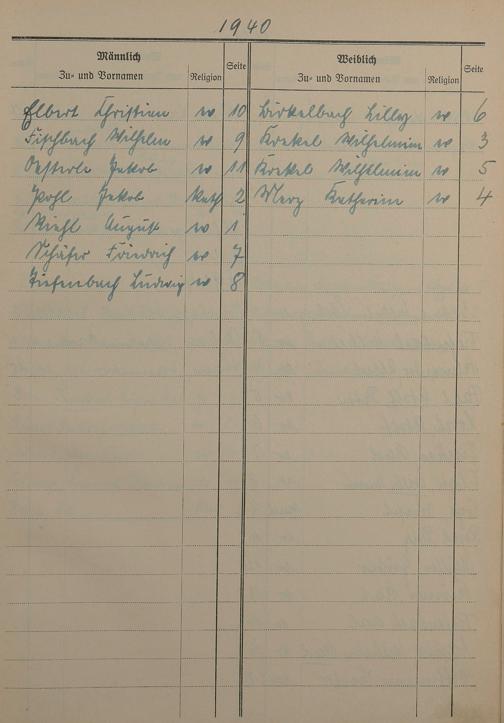 1940
Männlich Weiblich
Zu- und Vornamen Religion Seite Zu- und Vornamen Religion Seite
Elbert Christian ev 10 Birkelbach Lilly ev 6
Fischbach Wilhelm ev 9 Krekel Wilhelmine ev 3
Oesterle Jakob ev 11 Krekel Wilhelmine ev 5
Pohl Jakob kath 2 Merz Katharina ev 4
Riehl August ev 1
Schäfer Friedrich ev 7
Tiefenbach Ludwig ev 8